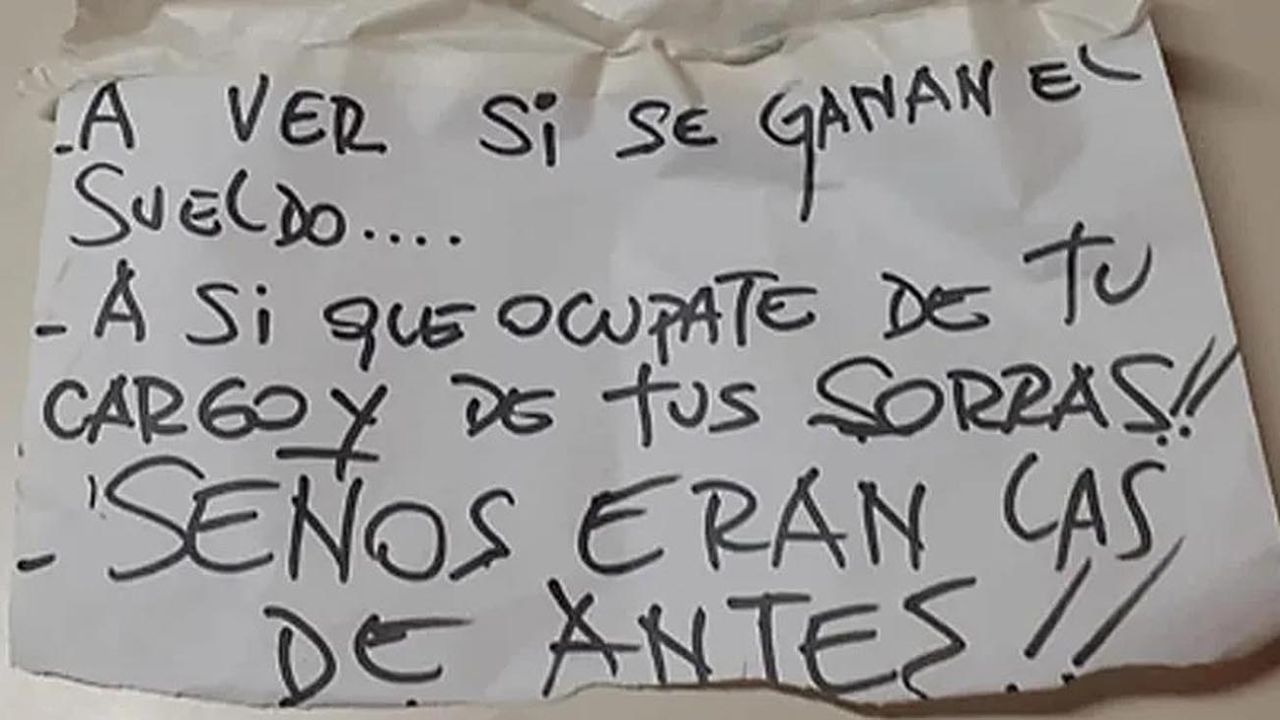 -A VER Si SE GANAN EL
SUELDO....
- A Si QUE OCUPATE DE TU
CARGO Y DE TUS SORRAS!!
- 'SEÑOS ERAN LAS
DE ANTES!!